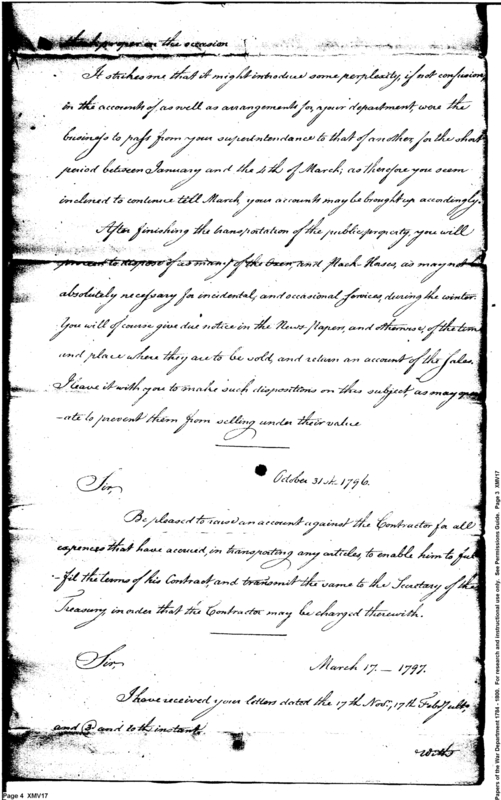 think proper on the occasion
It strikes me that it might introduce some perplexity, if not confusion,
in the accounts of, as well as arrangements for, your department, were the
business to pass from your superintendance to that of another, for the short
period between January and the 4th of March; as therefore you seem
inclined to continue till March, your accounts may be brought up accordingly.
After finishing the transportation of the public property, you will
proceed to dispose of as many of the Oxen, and Pack Horses, as may not be
absolutely necessary for incidental, and occasional Services, during the winter.
You will of course give due notice in the News Papers, and otherwise, of the time
and place where they are to be sold, and return an account of the Sales.
I leave it with you to make such dispositions on this subject, as may oper
-ate to prevent them from selling under their value
October 31st. 1796.
Sir,
Be pleased to raise an account against the Contractor for all
expences that have accrued, in transporting any articles, to enable him to ful
-fil the terms of his Contract, and transmit the same to the Secretary of the
Treasury, in order that the Contractor may be charged therewith.
Sir,
March 17. — 1797.
I have received your letters dated the 17th Novr, 17th Feby ulto
and and 20th instant.
With
Page 4 XMV17
Papers of the War Department 1784 - 1800. For research and instructional use only. See Permissions Guide. Page 3 XMV17